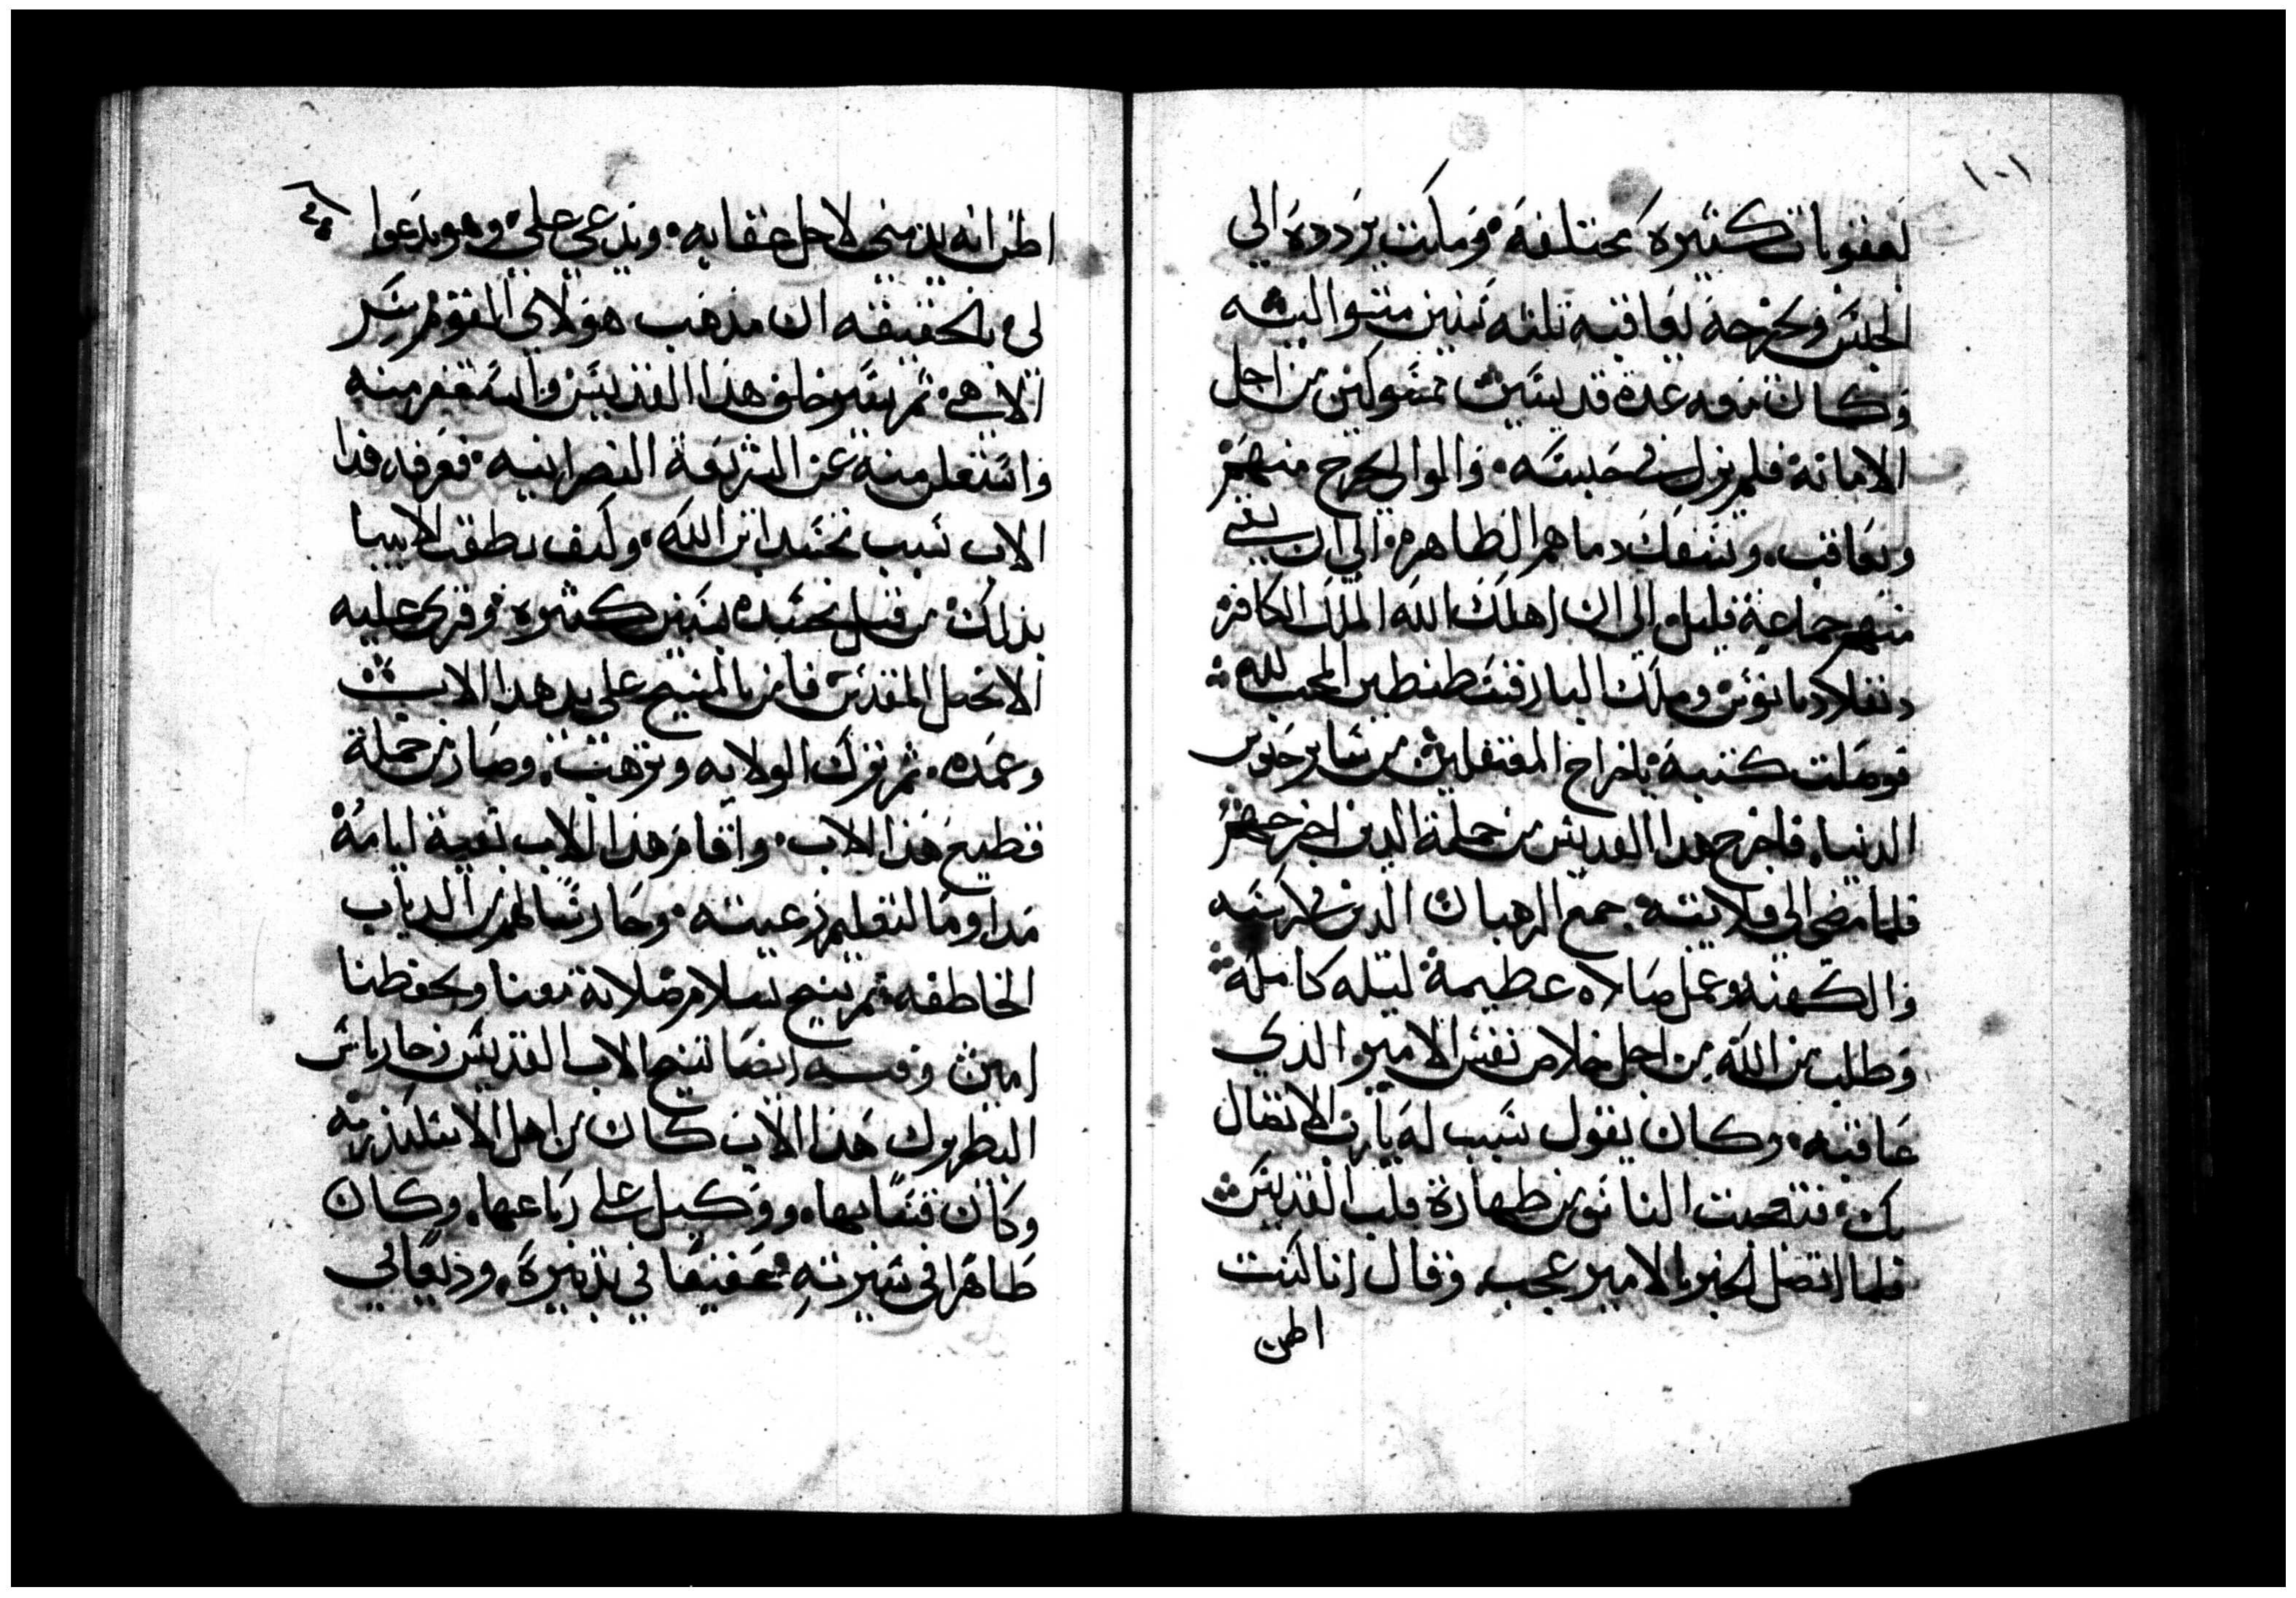 ١٠١
لعقوبات كثيرة مختلفة وماكث يردده الي
الحبس ويخرجه يعاقبه تلته سنين متواليه
وكان معه عدة قديسين ممسوكين من اجل
الامانة فلم يزل في حبسه والوالي يخرج منهم
ويعاقب ويسفك دماهم الطاهره الي ان بقي
منهم جماعة قليل الي ان اهلك الله الملك الكافر
دقلاديانوس وملك البار قسطنطين المحب لله
فوصلت كتبه باخراج المعتقلين من ساير حبوس
الدنيا فاخرج هدا القديس من جملة الدين اخرجهم
فلما مضي الي قلايته جمع الرهبان الدين كرسيه
والكهنه وعمل صلاه عظيمة ليله كاملة
وطلب من الله من اجل خلاص نفس الامير الدي
عاقبه وكان يقول سبب له يارب الاتصال
بك فتعجبت الناس من طهارة قلب القديس
فلما اتصل الخبر بالامير عجب وقال انا كنت
اطن
اطن انه يدمني لاجل عقابه ويدعي علي وهو يدعوا
لي بالحقيقه ان مدهب هولاي القوم سر
الاهي ثم بعد خلف هدا القديس واستقر منه
واستعلم منه عن الشريعة النصرانيه فعرفه هدا
الاب سبب تجسد ابن الله وكيف نطقت الانبيا
بدلك من قبل تجسده بسنين كثيره وقري عليه
الانجيل المقدس فامن بالمسيح علي يد هدا الاب
وعمده ثم ترك الولايه وترهب وصار من جملة
قطيع هدا الاب واقام هدا الاب بقية ايامه
مداوما لتعليم رعيته وحارسا لهم من الدياب
الخاطفه ثم تنيح بسلام صلاته معنا وتحفظنا
امين وفيه ايضا تنيح الاب القديس زخارياس
البطريرك هدا الاب كان من اهل الاسكندريه
وكان قسا بها ووكيل علي رباعها وكان
طاهرا في سيرته عفيفا في تدبيره وديعا في